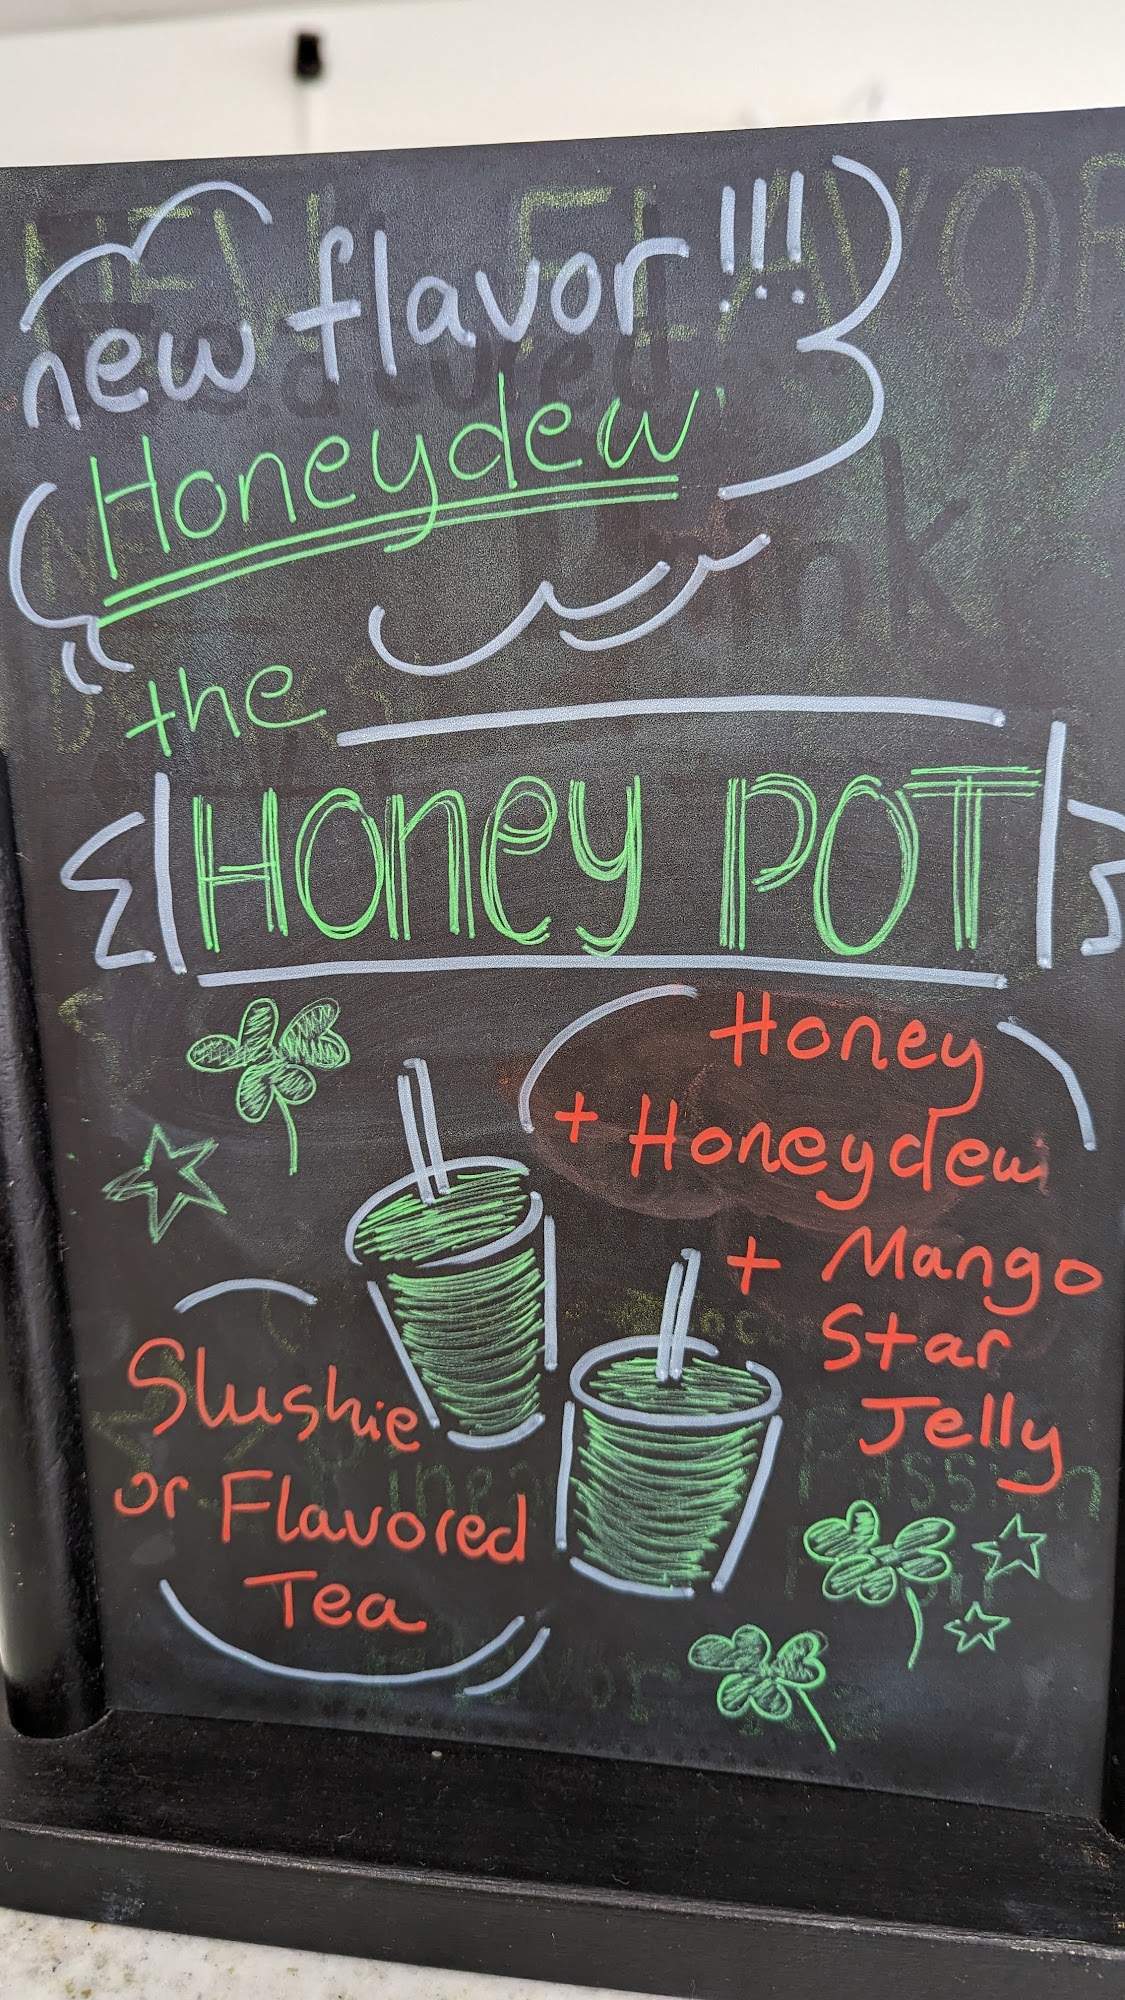 new flavor!!!
Honeydew
the
HONEY POT
Honey
+ Honeydew
+ Mango
Star
Jelly
Slushie
or Flavored
Tea